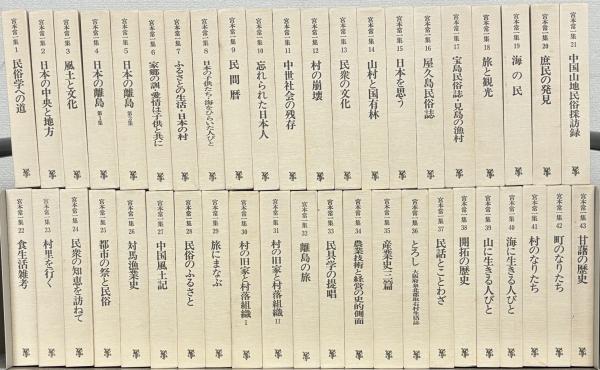 宮本常一集 1 民俗学への道
宮本常一集 2 日本の中央と地方
宮本常一集 3 風土と文化
宮本常一集 4 日本の離島 第1集
宮本常一集 5 日本の離島 第2集
宮本常一集 6 家郷の訓・愛情は子供と共に
宮本常一集 7 ふるさとの生活・日本の村
宮本常一集 8 日本の子供たち・海をひらいた人びと
宮本常一集 9 民間暦
宮本常一集 10 忘れられた日本人
宮本常一集 11 中世社会の残存
宮本常一集 12 村の崩壊
宮本常一集 13 民衆の文化
宮本常一集 14 山村と国有林
宮本常一集 15 日本を思う
宮本常一集 16 屋久島民俗誌
宮本常一集 17 宝島民俗誌・見島の漁村
宮本常一集 18 旅と観光
宮本常一集 19 海の民
宮本常一集 20 庶民の発見
宮本常一集 21 中国山地民俗採訪録
宮本常一集 22 食生活雑考
宮本常一集 23 村里を行く
宮本常一集 24 民衆の知恵を訪ねて
宮本常一集 25 都市の祭と民俗
宮本常一集 26 対馬漁業史
宮本常一集 27 中国風土記
宮本常一集 28 民俗のふるさと
宮本常一集 29 旅にまなぶ
宮本常一集 30 村の旧家と村落組織 I
宮本常一集 31 村の旧家と村落組織 II
宮本常一集 32 離島の旅
宮本常一集 33 民具学の提唱
宮本常一集 34 農業技術と経営の史的側面
宮本常一集 35 産業史三篇
宮本常一集 36 とろし 大阪府泉北郡取石村生活誌
宮本常一集 37 民話とことわざ
宮本常一集 38 開拓の歴史
宮本常一集 39 山に生きる人びと
宮本常一集 40 海に生きる人びと
宮本常一集 41 村のなりたち
宮本常一集 42 町のなりたち
宮本常一集 43 甘藷の歴史